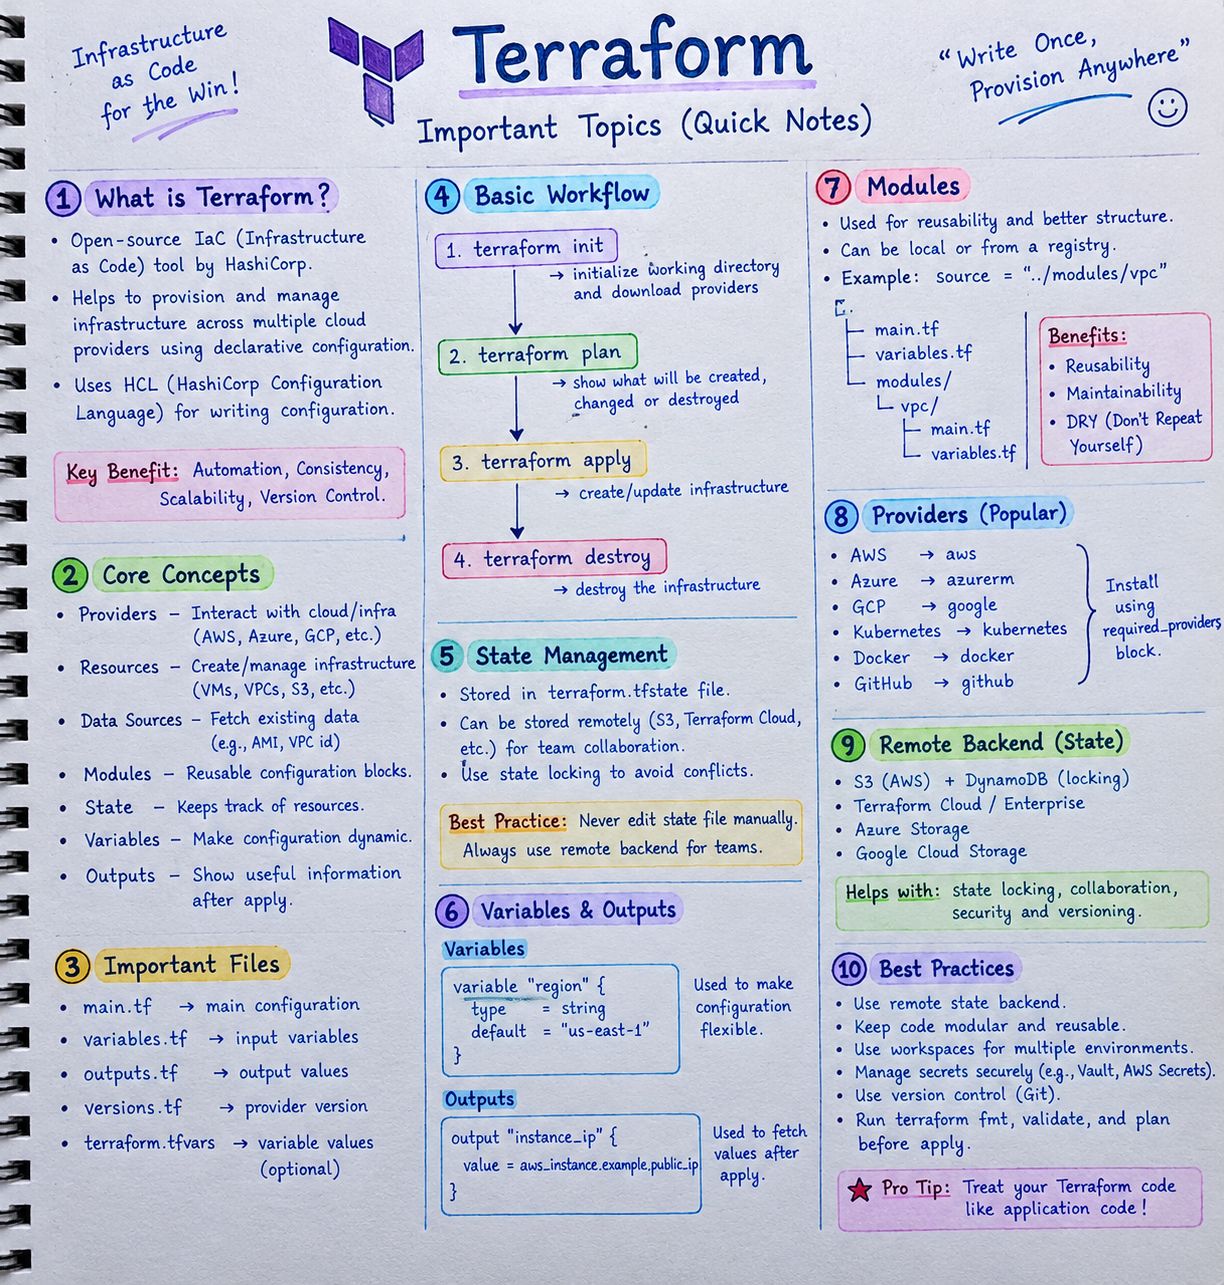 Infrastructure
as Code
for the Win!
Terraform
Important Topics (Quick Notes)
“Write Once,
Provision Anywhere”
1 What is Terraform?
• Open-source IaC (Infrastructure
as Code) tool by HashiCorp.
• Helps to provision and manage
infrastructure across multiple cloud
providers using declarative configuration.
• Uses HCL (HashiCorp Configuration
Language) for writing configuration.
Key Benefit: Automation, Consistency,
Scalability, Version Control.
2 Core Concepts
• Providers – Interact with cloud/infra
(AWS, Azure, GCP, etc.)
• Resources – Create/manage infrastructure
(VMs, VPCs, S3, etc.)
• Data Sources – Fetch existing data
(e.g., AMI, VPC id)
• Modules – Reusable configuration blocks.
• State – Keeps track of resources.
• Variables – Make configuration dynamic.
• Outputs – Show useful information
after apply.
3 Important Files
• main.tf → main configuration
• variables.tf → input variables
• outputs.tf → output values
• versions.tf → provider version
• terraform.tfvars → variable values
(optional)
4 Basic Workflow
1. terraform init
→ initialize working directory
and download providers
2. terraform plan
→ show what will be created,
changed or destroyed
3. terraform apply
→ create/update infrastructure
4. terraform destroy
→ destroy the infrastructure
5 State Management
• Stored in terraform.tfstate file.
• Can be stored remotely (S3, Terraform Cloud,
etc.) for team collaboration.
• Use state locking to avoid conflicts.
Best Practice: Never edit state file manually.
Always use remote backend for teams.
6 Variables & Outputs
Variables
variable "region" {
type = string
default = "us-east-1"
}
Used to make
configuration
flexible.
Outputs
output "instance_ip" {
value = aws_instance.example.public_ip
}
Used to fetch
values after
apply.
7 Modules
• Used for reusability and better structure.
• Can be local or from a registry.
• Example: source = "../modules/vpc"
main.tf
variables.tf
modules/
vpc/
main.tf
variables.tf
Benefits:
• Reusability
• Maintainability
• DRY (Don't Repeat
Yourself)
8 Providers (Popular)
• AWS → aws
• Azure → azurerm
• GCP → google
• Kubernetes → kubernetes
• Docker → docker
• GitHub → github
Install
using
required_providers
block.
9 Remote Backend (State)
• S3 (AWS) + DynamoDB (locking)
• Terraform Cloud / Enterprise
• Azure Storage
• Google Cloud Storage
Helps with: state locking, collaboration,
security and versioning.
10 Best Practices
• Use remote state backend.
• Keep code modular and reusable.
• Use workspaces for multiple environments.
• Manage secrets securely (e.g., Vault, AWS Secrets).
• Use version control (Git).
• Run terraform fmt, validate, and plan
before apply.
Pro Tip: Treat your Terraform code
like application code!